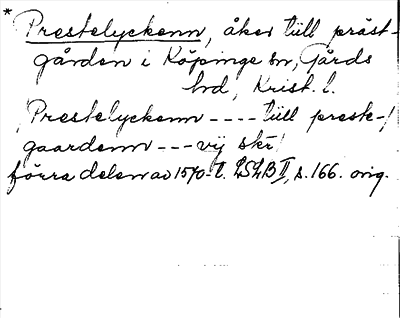 * Prestelyckenn, åker till präst-
gården i Köpinge sn, Gärds
hd, Krist. l.
"Prestelyckenn ---- tiill preste-
gaardenn --- vij skr"
förra delen av 1570-t. LSLB II, s. 166. orig.